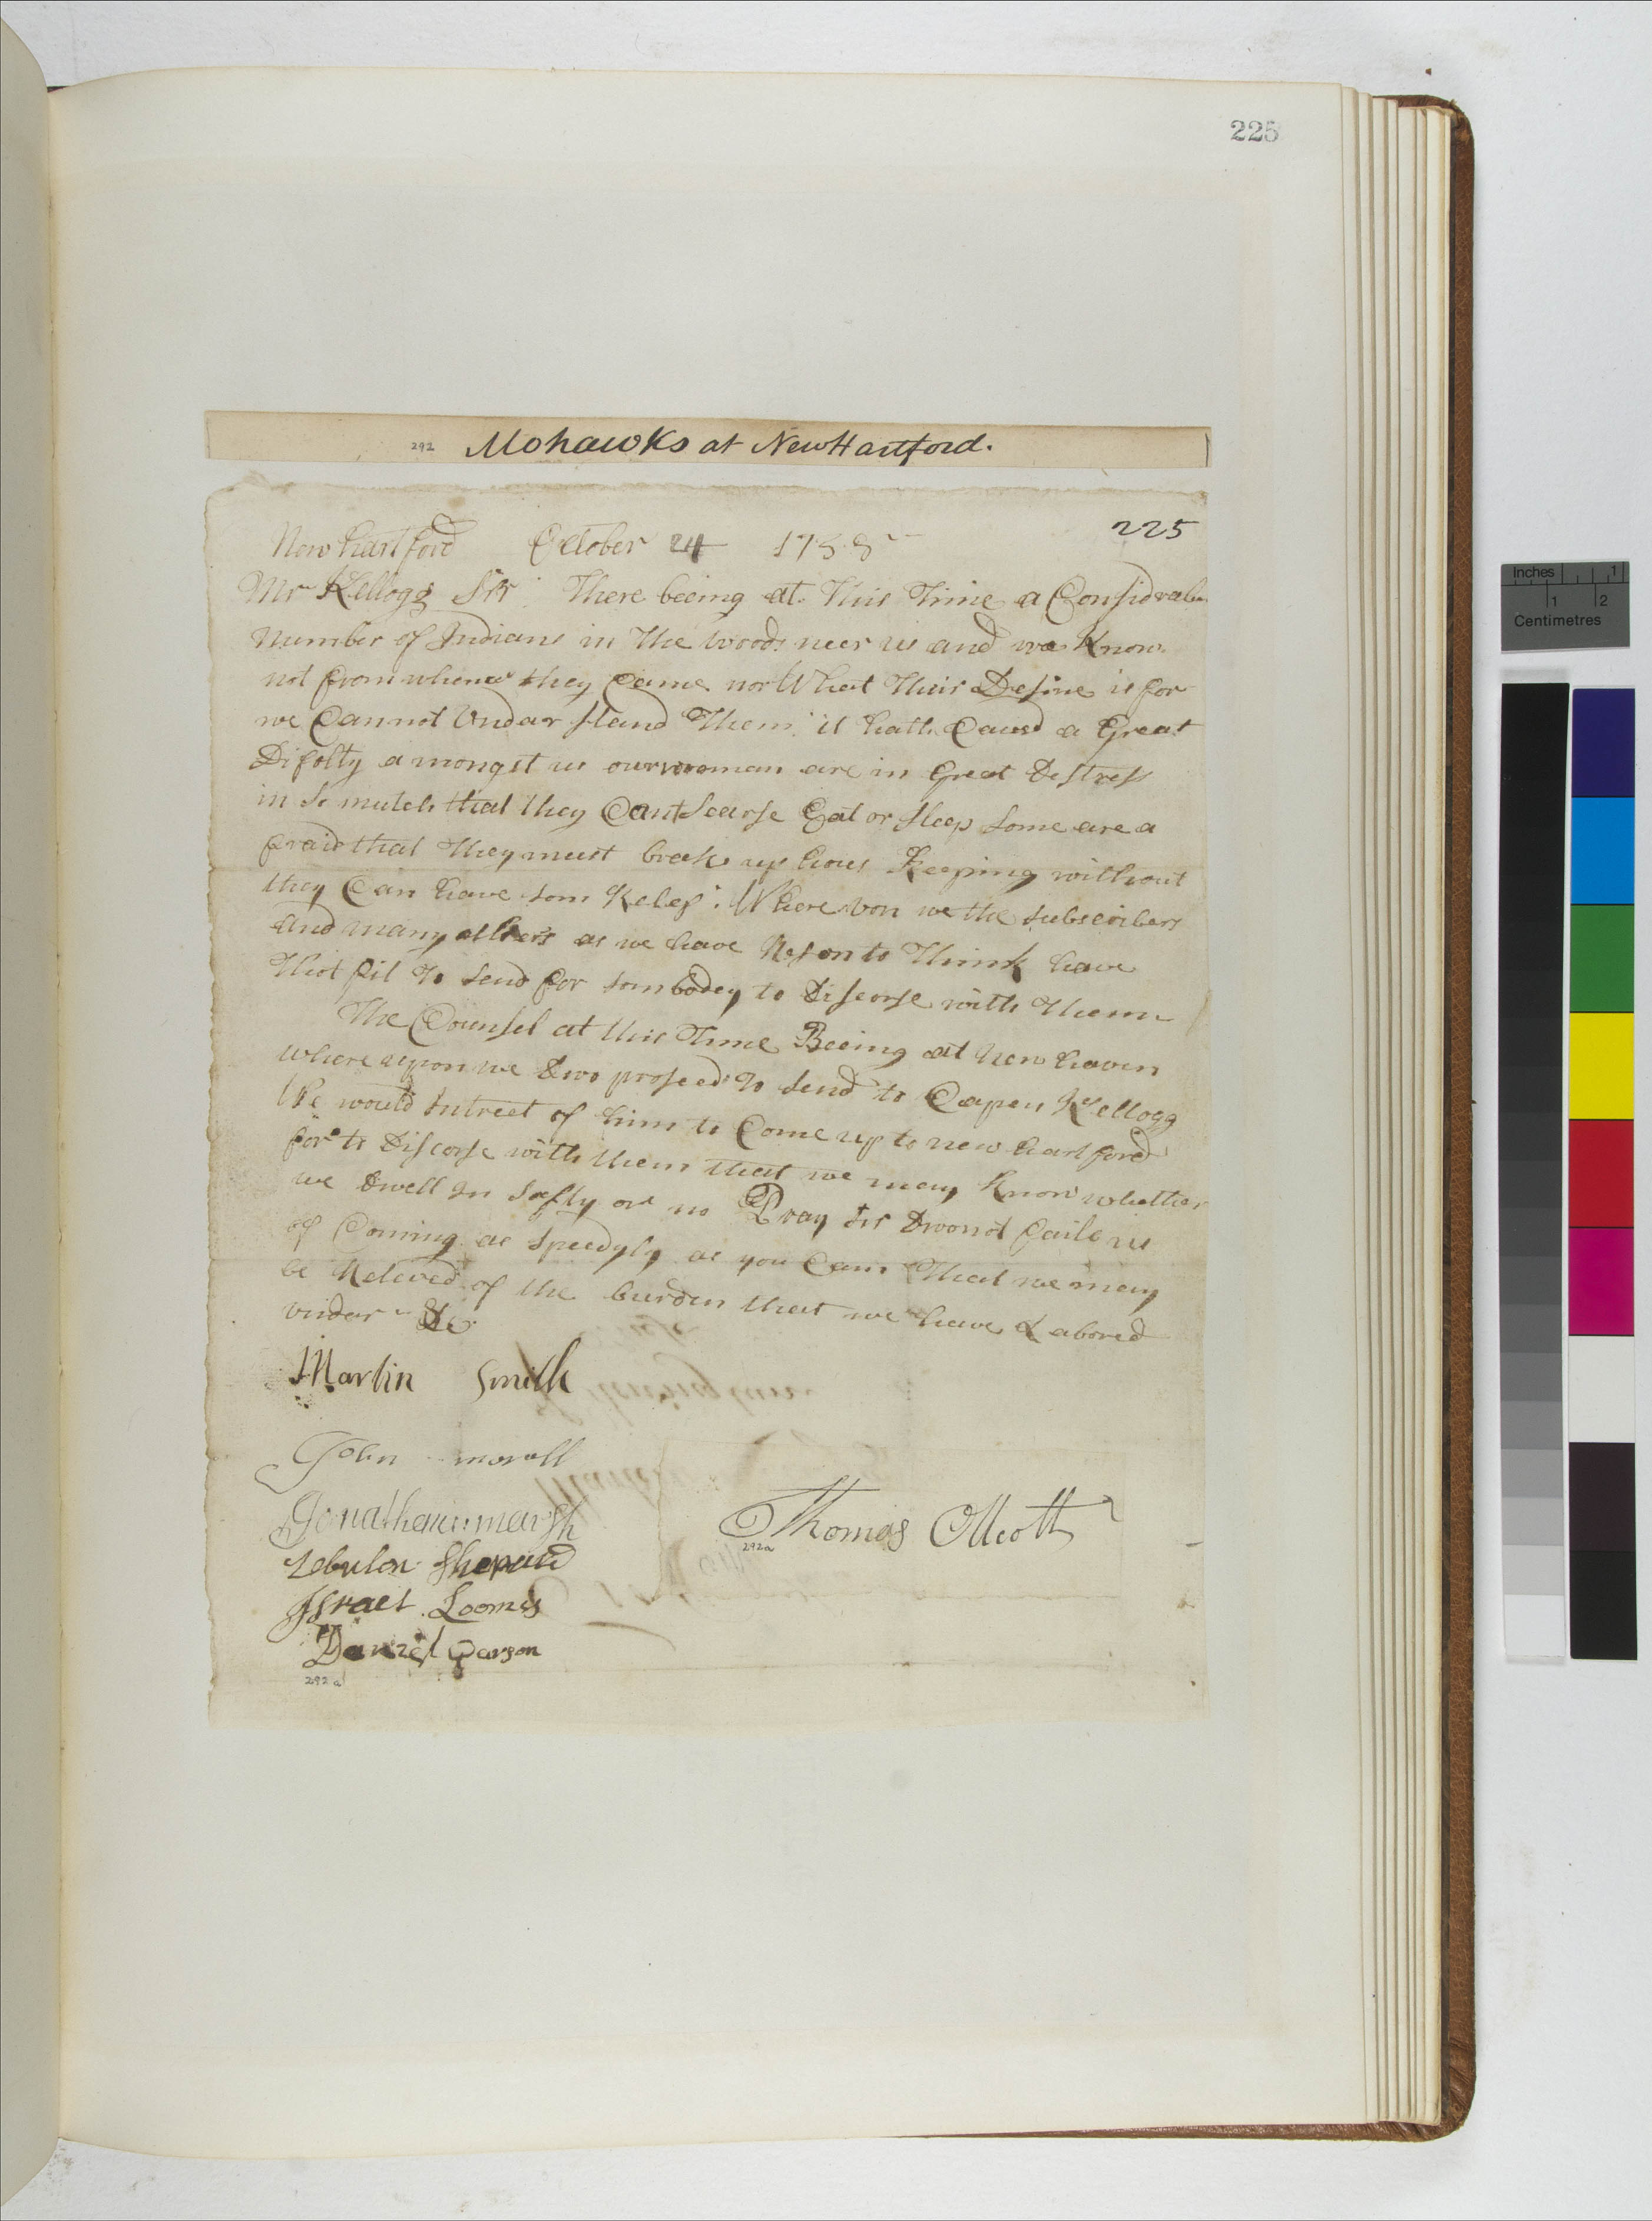 225
292 Mohawks at New Hartford.
225
New hartford October 24 1758
Mr Kellogg Sir There beeing at This Time a Considrable
Number of Indians in The woods neer us and we Know
not from whence they Came nor What Their Desine is for
we Cannot Undar stand Them it hath Caused a Great
Difolty a mongst us our woman are in Great Destress
in so mutch that they Cant Scarse Eat or sleep some are a
fraid that They must breake up hous Keeping without
they Can have som Relef: Where von we the subscribers
and many others as we have Reson to Think have
Thot fit To send for sombodey to Discorse with Them
The Counsel at this Time Beeing at New haven
where upon we Dwo proseed To send to Capen Kellogg
We would Intreet of him to Come up to new hartford
for to Discorse with them that we may Know whether
we Dwell In Safty or no Pray Sir Dwo not faile us
of Coming as speedyly as you Can That we may
be Releved of the burden that we have Labored
vndar &c
Martin Smith
John morall
Jonathan marsh
Zebulon Shepard
Israel Loomis
Daniel Parson
292a
Thomas Olcott
292a
Inches 1
1 2
Centimetres